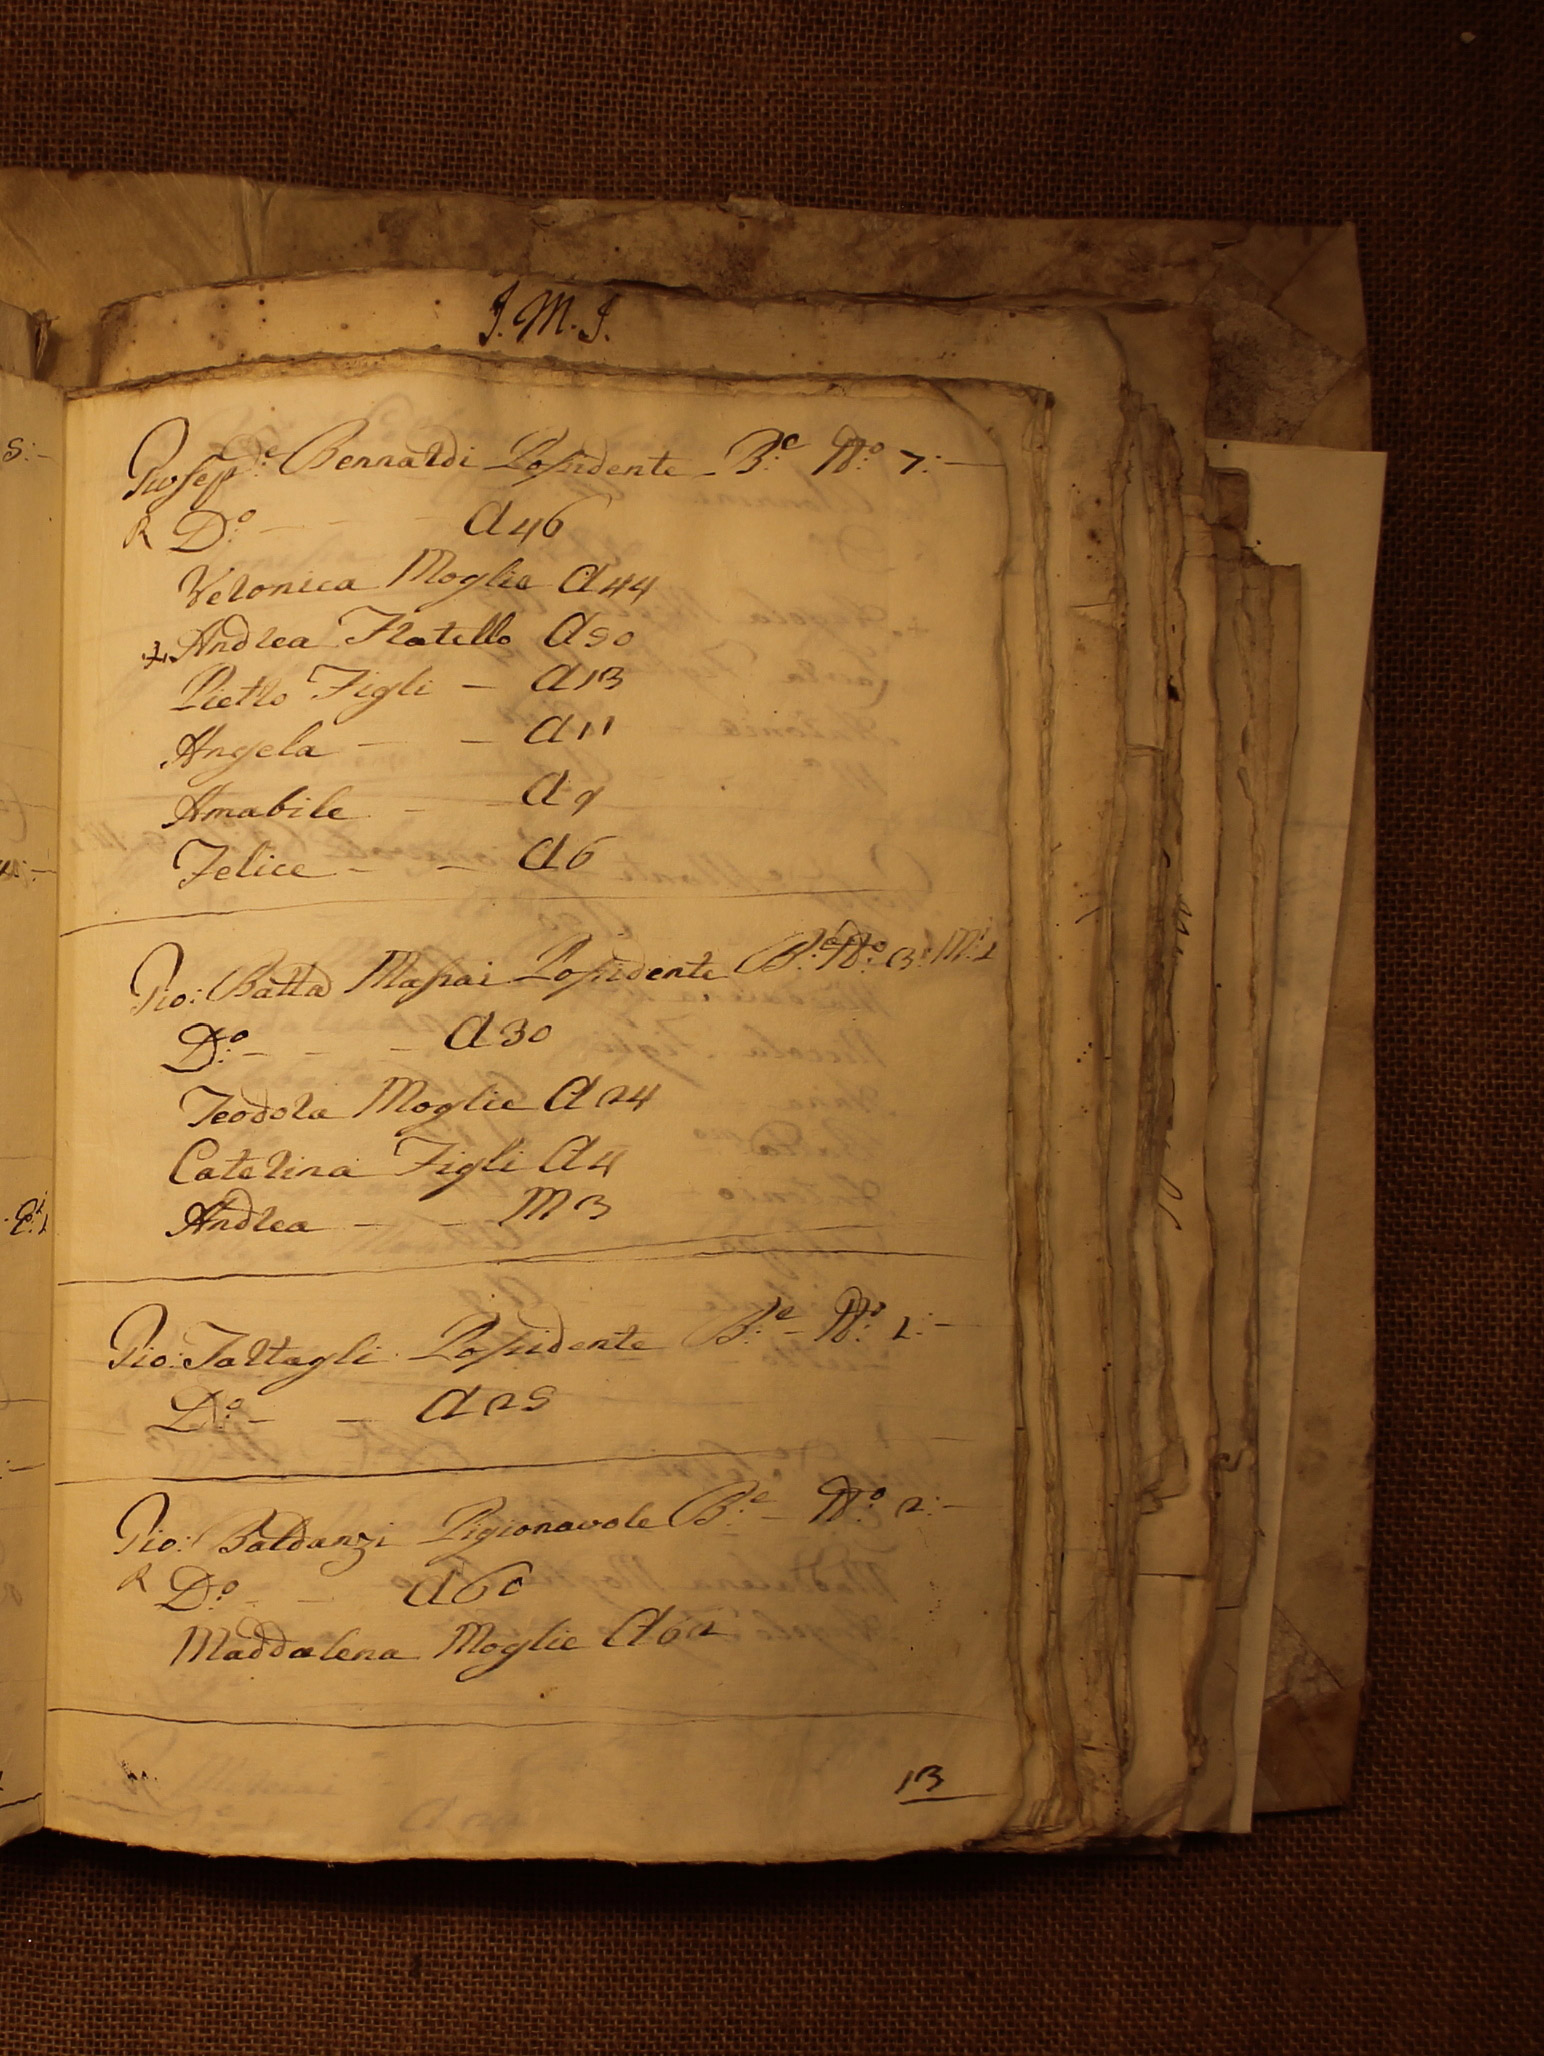 J. M. J.
Giosep.e Bernardi Possidente B.e N.o 7:—
R D.o - - - A 46
Veronica Moglie A 44
Andrea Fratello A 50
Pietro Figli — A 13
Angela — — A 11
Amabile - - A 9
Felice - - A 6
Gio: Batta Massai Possidente B.e N.o 3: M: 1
D.o - - - A 30
Teodora Moglie A 24
Caterina Figli A 4
Andrea — - M 3
Gio: Tartagli Possidente B.e - N.o 1:—
D.o - - A 25
Gio: Baldanzi Pigionavole B.e - N.o 2:—
R D.o - - A 60
Maddalena Moglie A 62
13